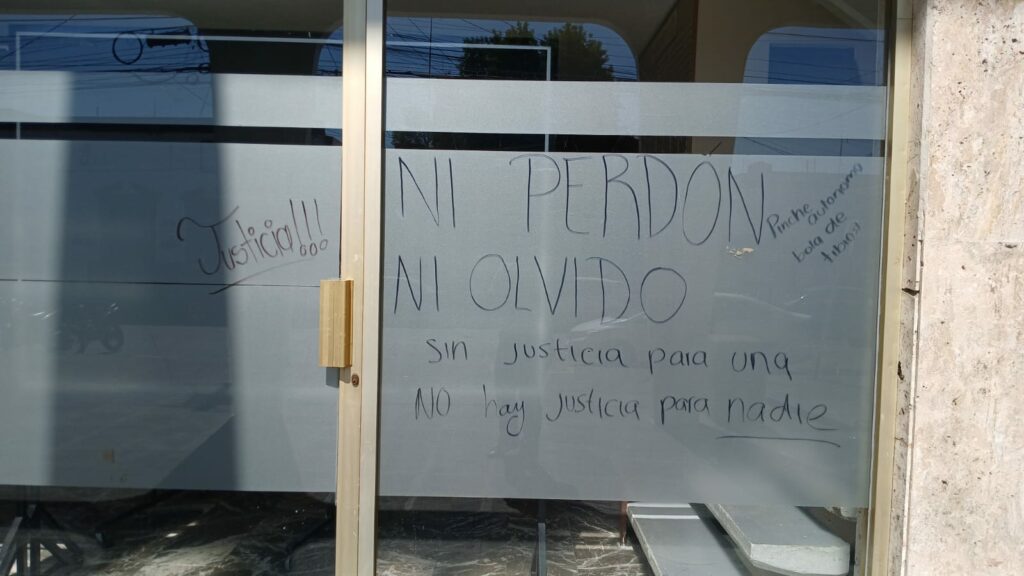 Justicia!!!
NI PERDÓN
NI OLVIDO
Sin justicia para una
NO hay justicia para nadie
Pinche
autonomo
bola de
tibios